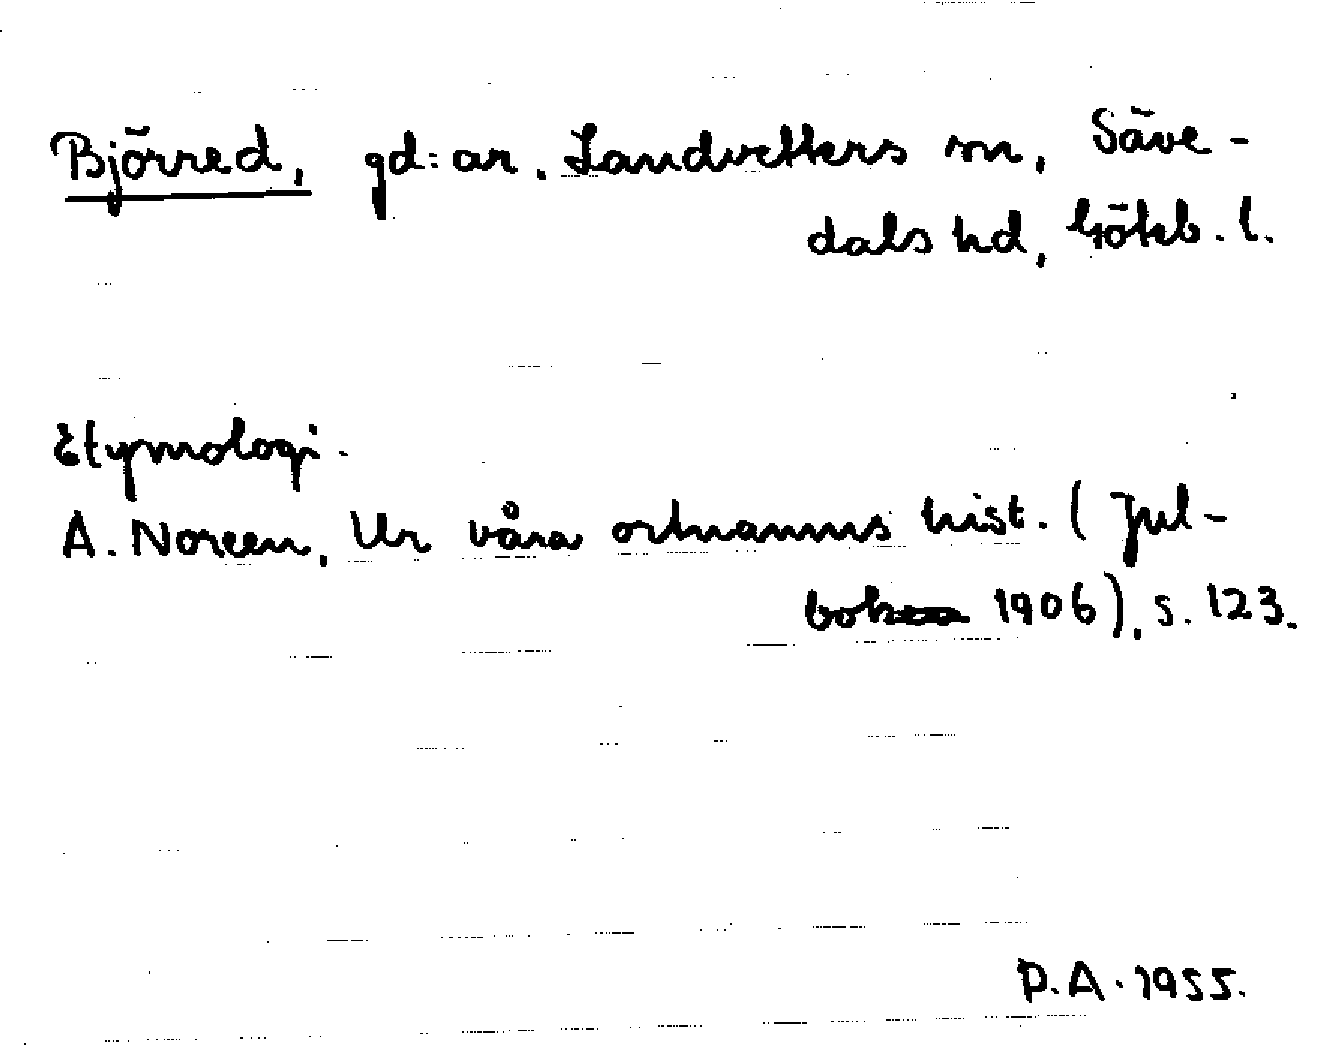 Björred, gd:ar. Landvetters sn, Säve-
dals hd, Göteb. l.
Etymologi.
A. Noreen, Ur våra ortnamns hist. (Jul-
bok 1906), s. 123.
P.A. 1955.